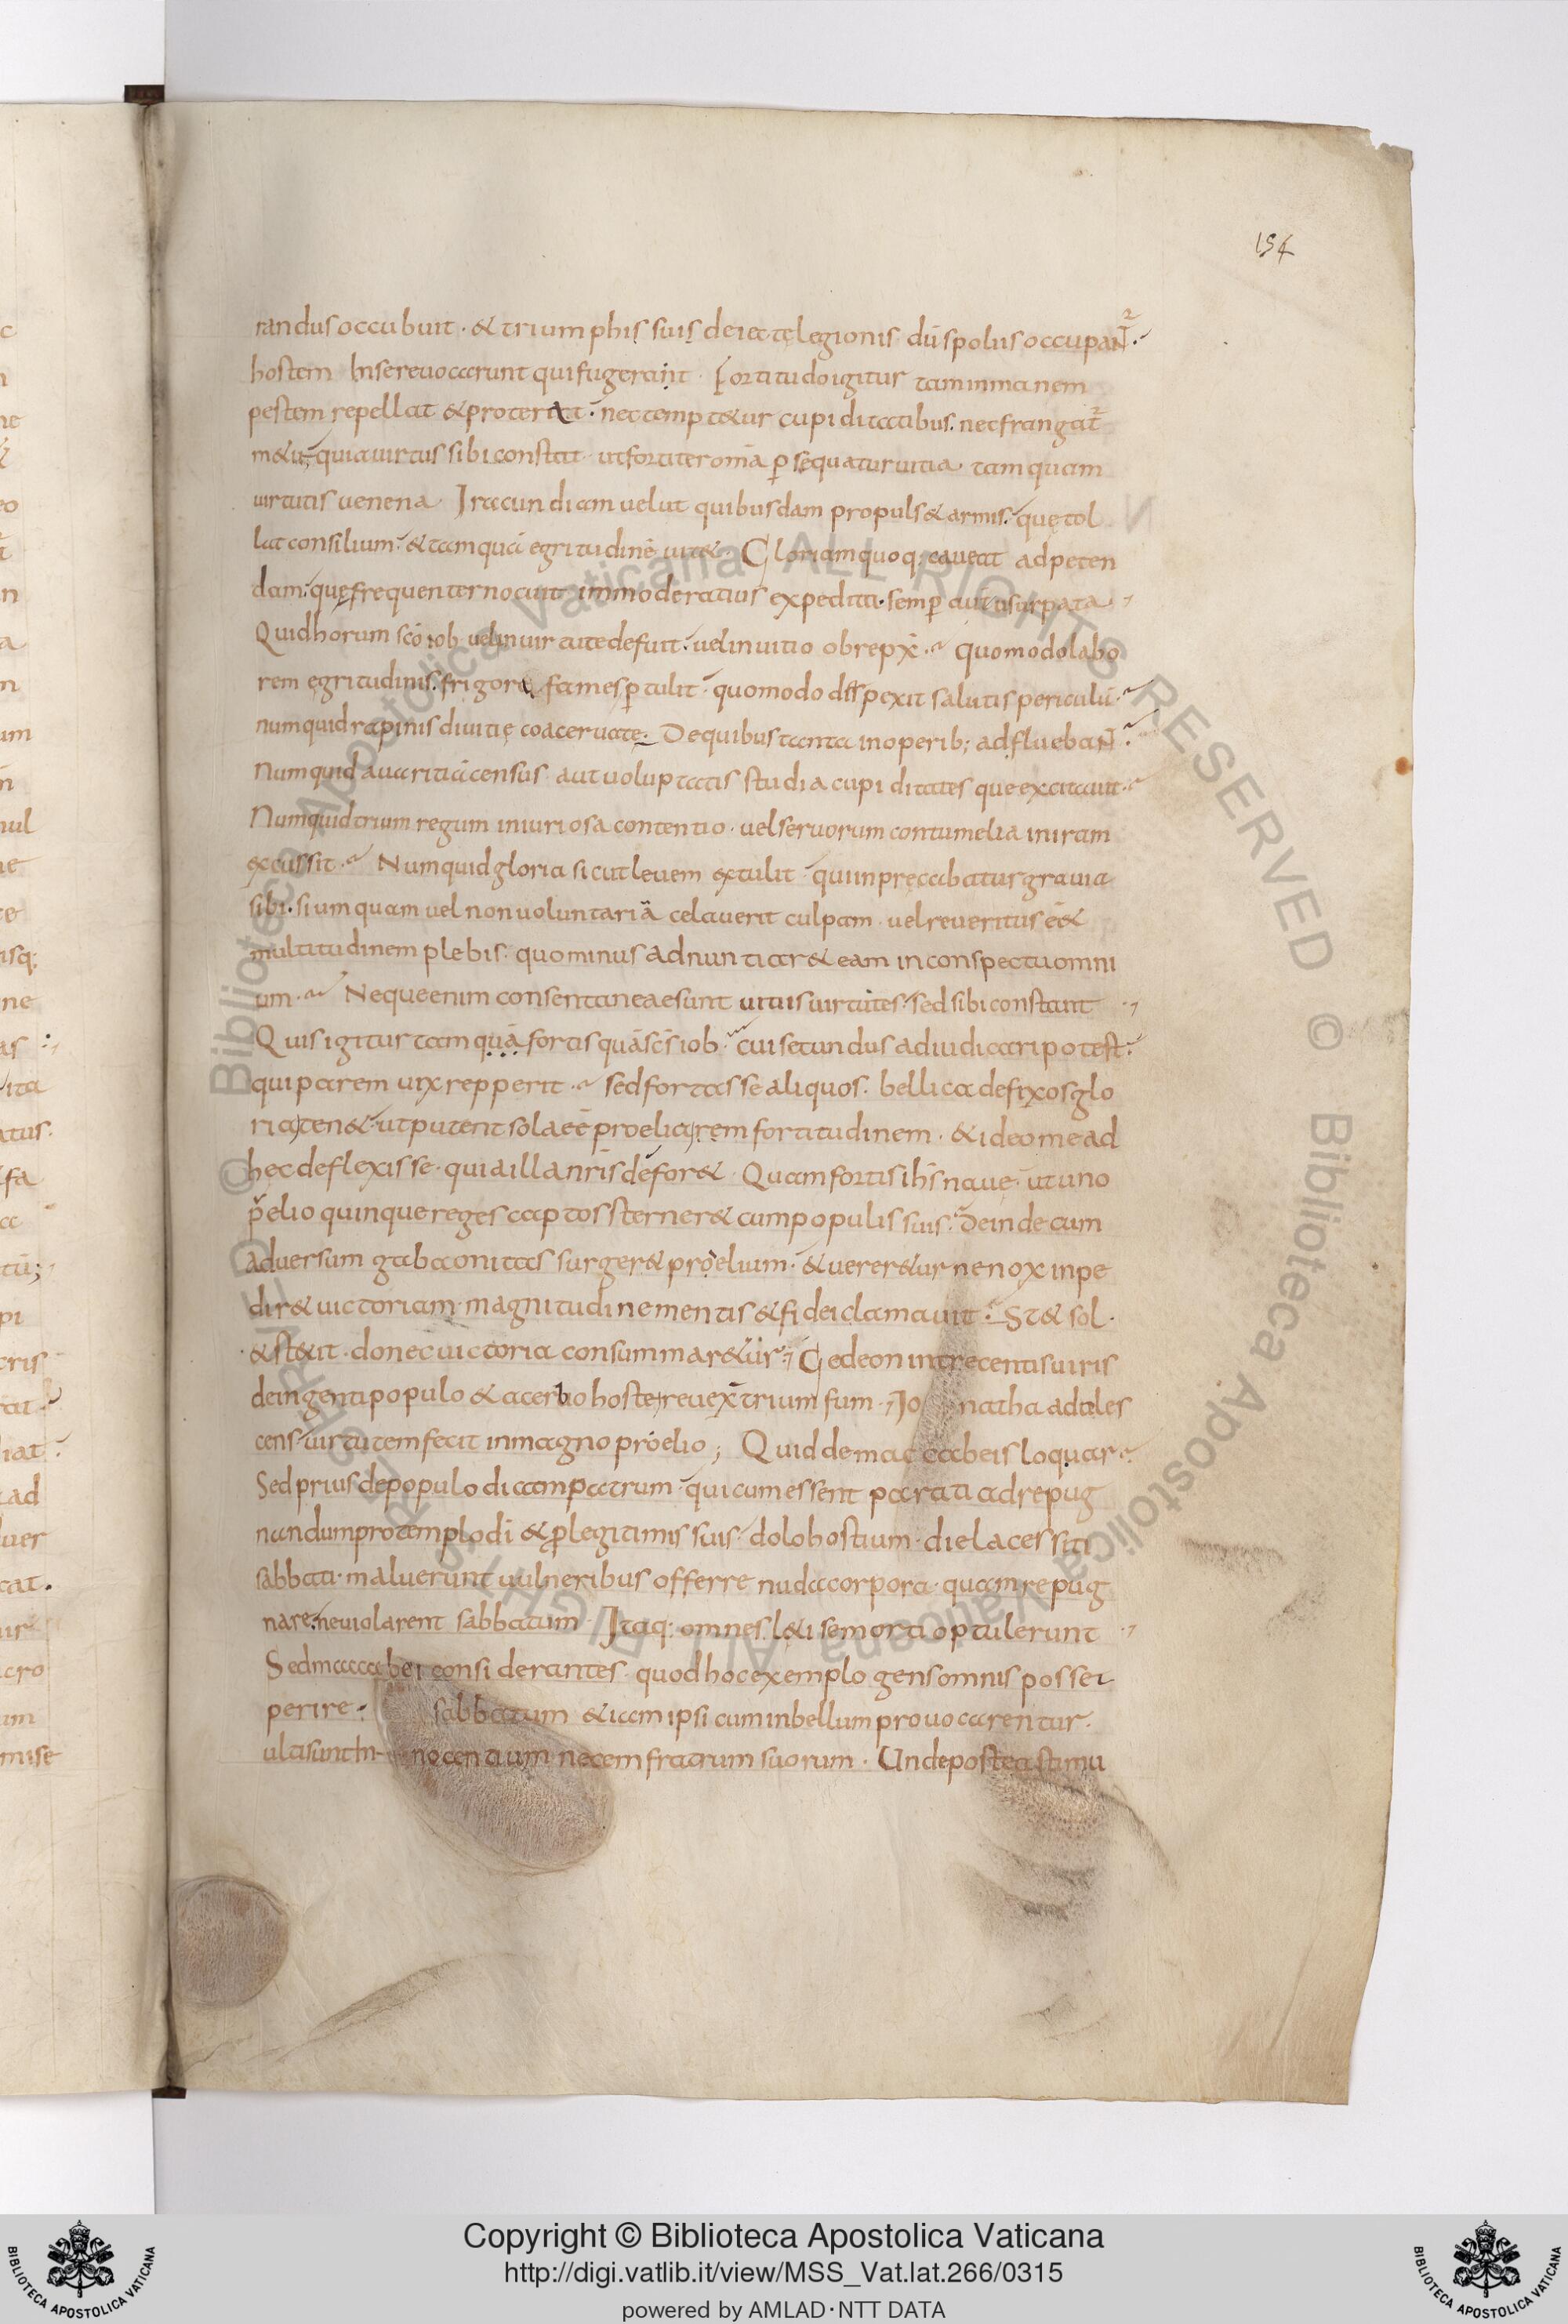 154
randus occubuit · & triumphis suis deiecte legionis dū spoliis occupaNt̄ ·
hostem In se reuocarunt qui fugerant · Fortitudo igitur tam inmanem
pestem repellat & proterat · nec tempt&ur cupiditatibus · nec frangat̄
m&u · quia uirtus sibi constat · ut fortiter om̄a p̱sequatur uitia tamquam
uirtutis uenena Iracundiam uelut quibusdam propuls& armis · quę tol
lat consilium · & tamquā egritudinē uit& · Gloriam quoq; caueat adpeten
dam · quę frequenter nocuit immoderatius expedita · semp̱ aut usurpata ·,
Quid horum sc̄o iob uel in uirtute defuit · uel in uitio obrepx̄ · quomodo labo
rem ęgritudinis · frigoris famis p̱tulit · quomodo despexit salutis periculū ·
numquid rapinis diuitię coaceruate · De quibus tanta inoperib; adfluebaNt ·
Numquid auaritiā census aut uoluptatis studia cupiditates que excitauit ·
Numquid trium regum iniuriosa contentio · uel seruorum contumelia in iram
excussit · Numquid gloria sicut leuem extulit · qui inpręcabatur grauia
sibi · si umquam uel non uoluntariā celauerit culpam · uel reueritus ē &
multitudinem plebis · quominus adnuntiar& eam in conspectu omni
um · Neque enim consentaneae sunt uitiis uirtutes · sed sibi constant ·,
Quis igitur tam quā fortis quā sc̄s iob · cui secundus adiudicari potest ·
qui parem uix repperit · sed fortasse aliquos · bellica defixos glo
ria ten& · ut putent sola eē proeliarem fortitudinem · & ideo me ad
hęc deflexisse · quia illa nr̄is defor& · Quam fortis ih̄s naue · ut uno
p̄elio quinque reges captos sterner& cum populis suis · Deinde cum
aduersum gabaonitas surger& proelium · & uerer&ur ne nox inpe
dir& uictoriam · magnitudine mentis & fidei clamauit · St& sol ·
& st&it · donec uictoria consummar&ur ·, Gedeon in trecentis uiris
de ingenti populo & acerbo hoste reuex̄ triumfum ·, Jo natha adoles
cens · uirtutem fecit in magno proelio ; Quid de maccabeis loquar ·
Sed prius de populo dicam patrum · qui cum essent parati ad repug
nandum pro templo dī & p̱ legitimis suis · dolo hostium · die lacessiti
sabbati · maluerunt uulneribus offerre nuda corpora · quam repug
nare · ne uiolarent sabbatum Itaq: omnes l&i se morti optulerunt ·,
Sed maccabei considerantes · quod hoc exemplo gens omnis posset
perire · sabbatum & iam ipsi cum in bellum prouocarentur ·
ulti sunt In nocentium necem fratrum suorum · Unde postea stimu
Copyright © Biblioteca Apostolica Vaticana
http://digi.vatlib.it/view/MSS_Vat.lat.266/0315
powered by AMLAD·NTT DATA